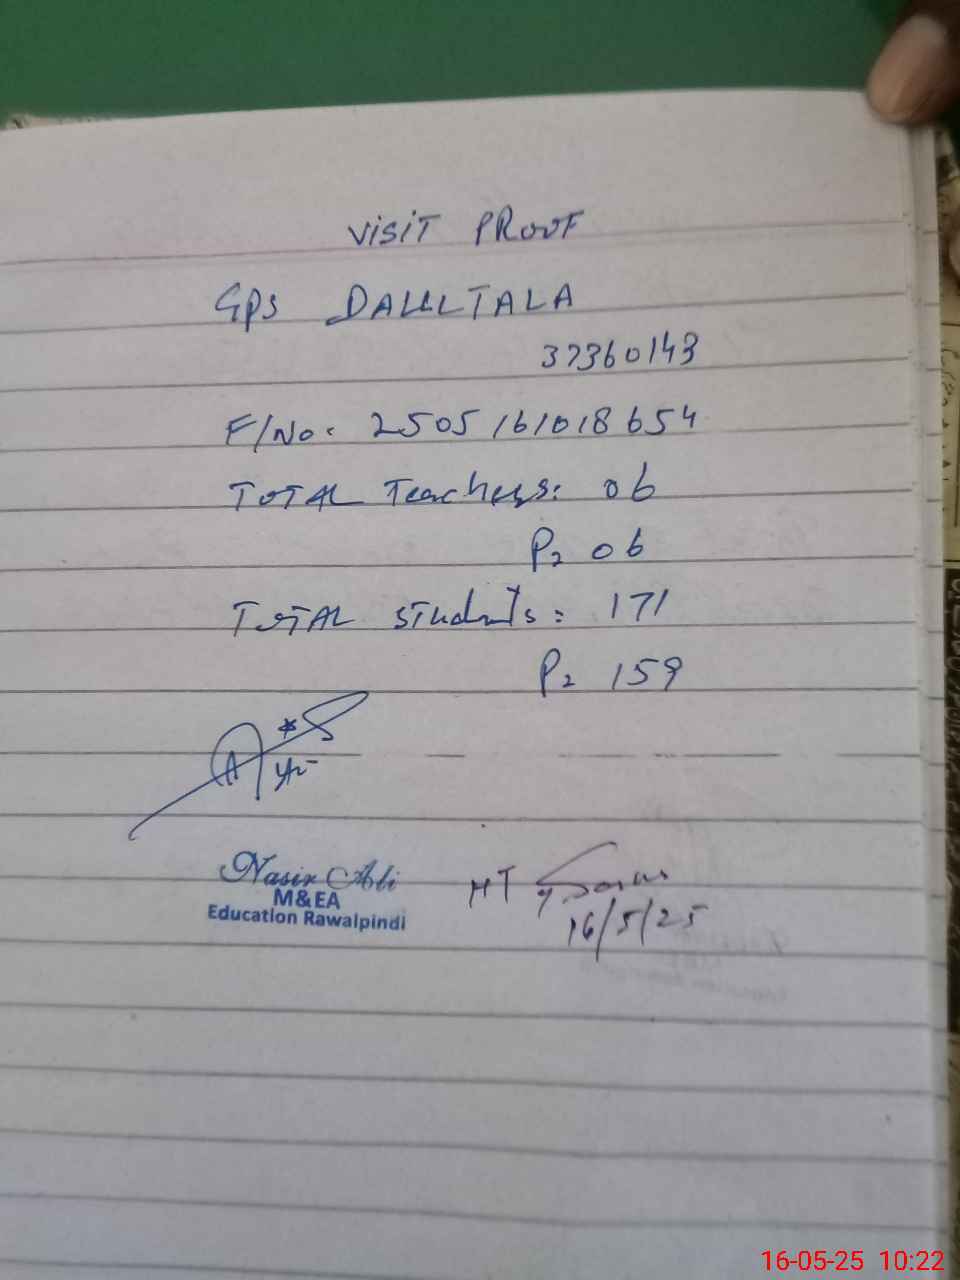 VISIT PROOF
GPS DAULTALA
37360143
F/No. 2505161018654
TOTAL Teachers: 06
P2 06
TOTAL Students: 171
P2 159
Nasir Ali
M&EA
Education Rawalpindi
HT
16/5/25
16-05-25 10:22